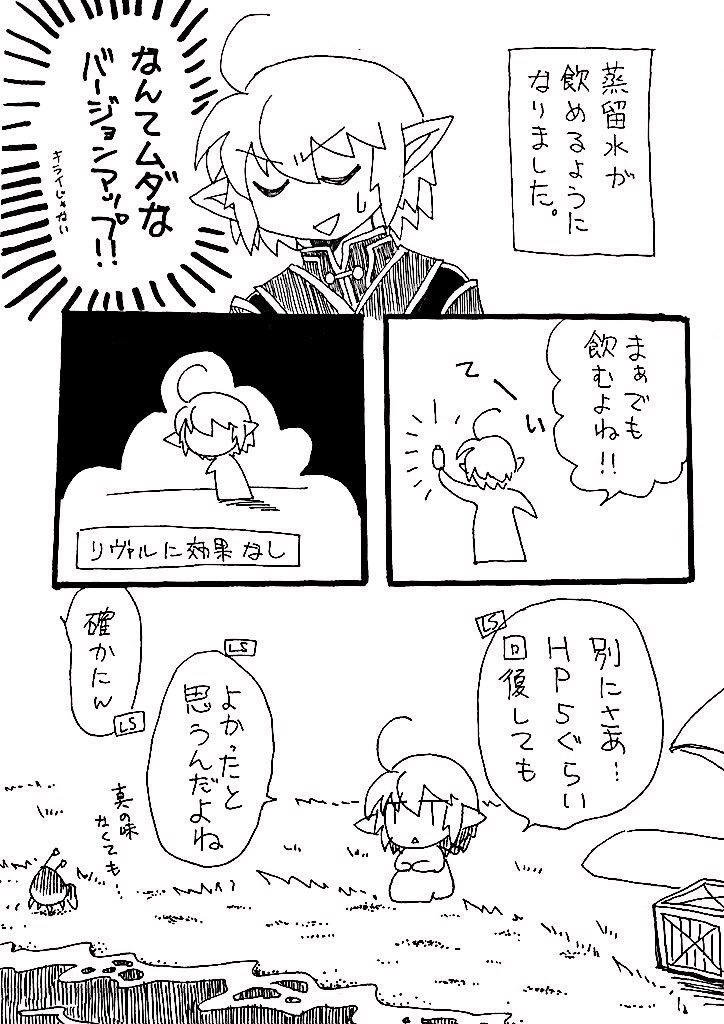 蒸留水が
飲めるように
なりました。
なんてムダな
バージョンアップ!!
キライじゃない
まぁでも
飲むよね!!
てーい
リヴァルに効果なし
LS
別にさあ…
HP5ぐらい
回復しても
LS
よかったと
思うんだよね
確かたん
LS
真の味
なくても…